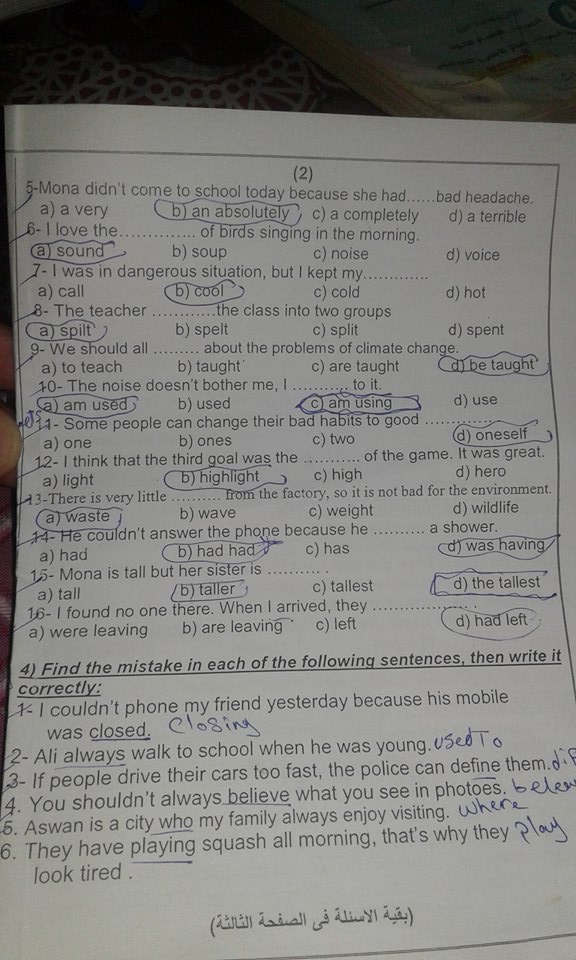 (2)
5-Mona didn't come to school today because she had......bad headache.
a) a very b) an absolutely c) a completely d) a terrible
6- I love the.............. of birds singing in the morning.
a) sound b) soup c) noise d) voice
7- I was in dangerous situation, but I kept my.............
a) call b) cool c) cold d) hot
8- The teacher ............the class into two groups
a) spilt b) spelt c) split d) spent
9- We should all ......... about the problems of climate change.
a) to teach b) taught c) are taught d) be taught
10- The noise doesn't bother me, I ........... to it.
a) am used b) used c) am using d) use
11- Some people can change their bad habits to good ..............
a) one b) ones c) two d) oneself
12- I think that the third goal was the .......... of the game. It was great.
a) light b) highlight c) high d) hero
13-There is very little .......... from the factory, so it is not bad for the environment.
a) waste b) wave c) weight d) wildlife
14- He couldn't answer the phone because he ......... a shower.
a) had b) had had c) has d) was having
15- Mona is tall but her sister is .......... .
a) tall b) taller c) tallest d) the tallest
16- I found no one there. When I arrived, they .................. .
a) were leaving b) are leaving c) left d) had left
4) Find the mistake in each of the following sentences, then write it
correctly:
1- I couldn't phone my friend yesterday because his mobile
was closed. closing
2- Ali always walk to school when he was young. used To
3- If people drive their cars too fast, the police can define them.
4. You shouldn't always believe what you see in photoes.
5. Aswan is a city who my family always enjoy visiting. where
6. They have playing squash all morning, that's why they play
look tired .
(بقية الاسئلة فى الصفحة الثالثة)